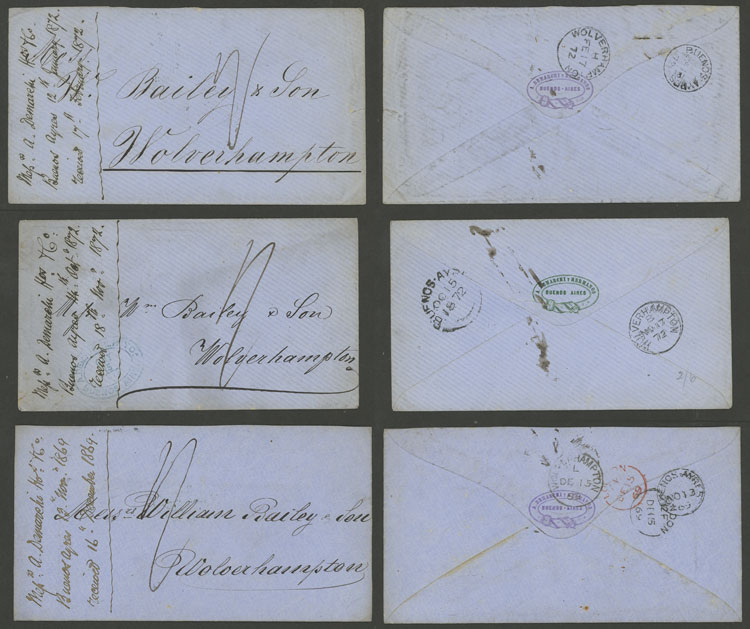 Messrs A. Demarchi Hnos & Co.
Buenos Ayres 12th January 1872.
received 17th February 1872.
Bailey & Son
Wolverhampton
WOLVERHAMPTON
H
FE 17
72
BUENOS-AYRES
A. DEMARCHI Y HERMANOS
BUENOS-AIRES
Messrs A. Demarchi Hnos & Co.
Buenos Ayres 14th Octr 1872.
received 18th Novr 1872.
Wm Bailey & Son
Wolverhampton
BUENOS-AYRES
OC 15
1872
A. DEMARCHI Y HERMANOS
BUENOS AIRES
WOLVERHAMPTON
72
Messrs A. Demarchi Hnos & Co.
Buenos Ayres 13th Novr 1869
received 16th December 1869.
Messrs William Bailey & Son
Wolverhampton
WOLVERHAMPTON
L
DE 15
A. DEMARCHI Y HERMANOS
BUENOS-AIRES
BUENOS-AYRES
69
LONDON
DE 15
69